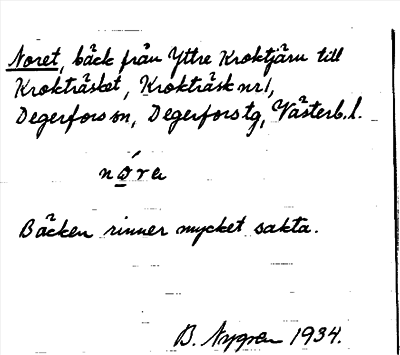 Noret, bäck från Yttre Kroktjärn till
Krokträsket, Krokträsk nr 1,
Degerfors sn, Degerfors tg, Västerb. l.
nǫ́ra
Bäcken rinner mycket sakta.
B. Nygren 1934.